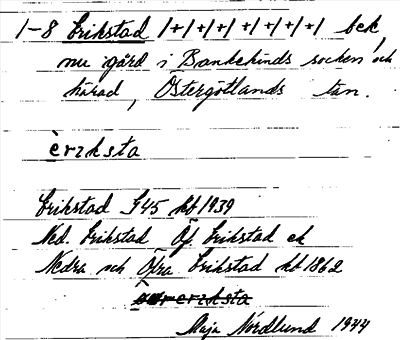 1-8 Erikstad 1+1+1+1+1+1+1+1 bek,
nu igård i Bankekinds socken och
härad, Östergötlands län.
èrıksta
Erikstad J45 kb 1939
Ned. Erikstad Öf. Erikstad ek
Nedra och Öfra Erikstad kb 1862
erıksta
Maja Nordlund 1944